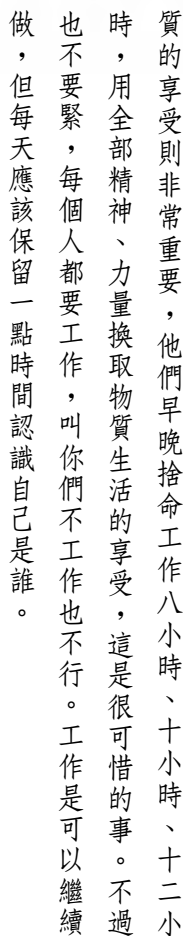 質的享受則非常重要，他們早晚捨命工作八小時、十小時、十二小
時，用全部精神、力量換取物質生活的享受，這是很可惜的事。不過
也不要緊，每個人都要工作，叫你們不工作也不行。工作是可以繼續
做，但每天應該保留一點時間認識自己是誰。